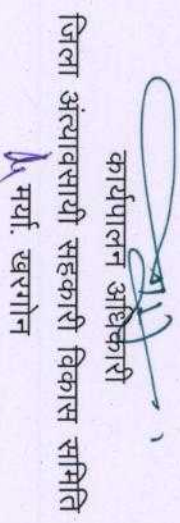 कार्यपालन अधिकारी
जिला अंत्यावसायी सहकारी विकास समिति
मर्या. खरगोन